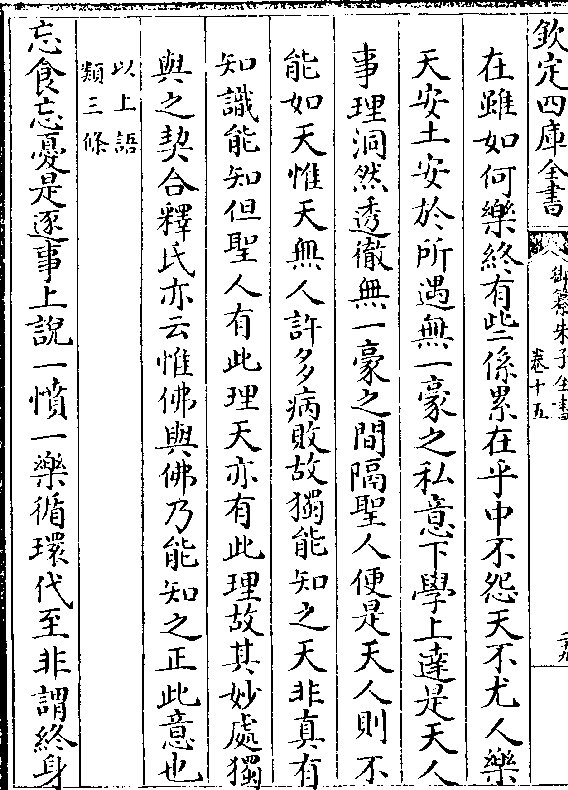 欽定四庫全書
御纂朱子全書
卷十五
二九
在雖如何樂終有些係累在乎中不怨天不尤人樂
天安土安於所遇無一豪之私意下學上達是天人
事理洞然透徹無一豪之間隔聖人便是天人則不
能如天惟天無人許多病敗故獨能知之天非真有
知識能知但聖人有此理天亦有此理故其妙處獨
與之契合釋氏亦云惟佛與佛乃能知之正此意也
以上語
類三條
忘食忘憂是逐事上說一憤一樂循環代至非謂終身